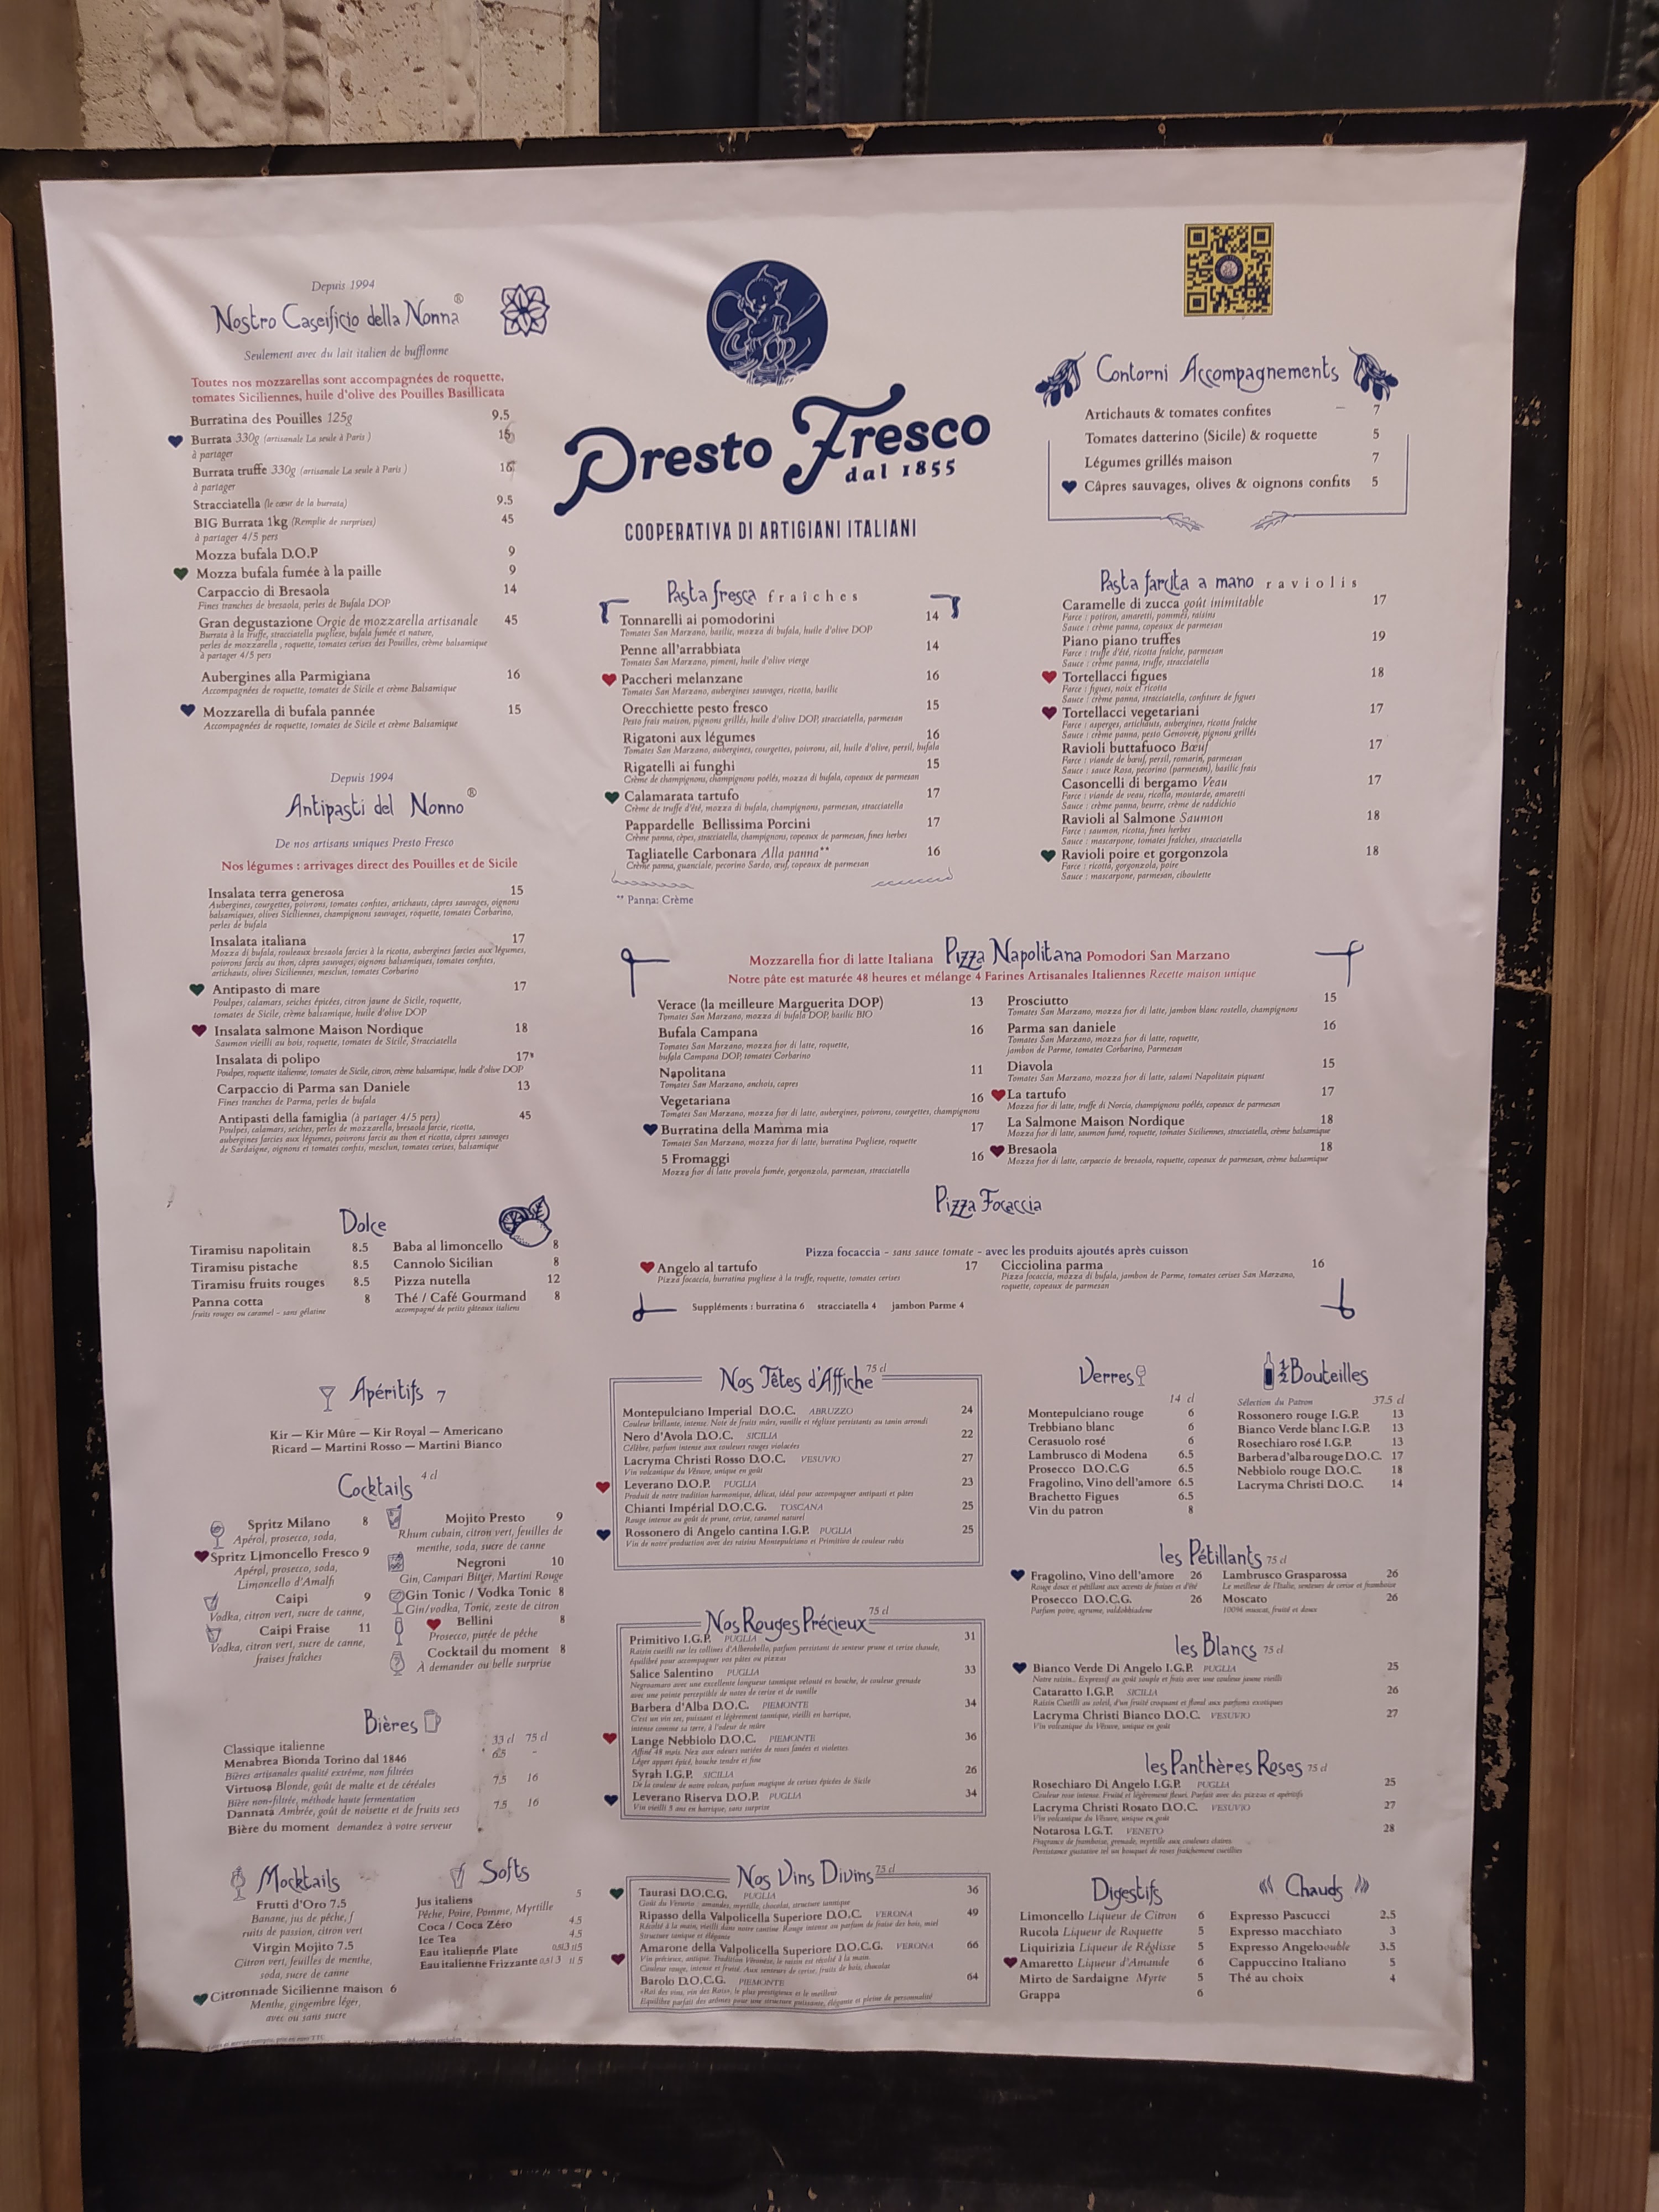 Depuis 1994
Nostro Caseificio della Nonna ®
Seulement avec du lait italien de bufflonne
Toutes nos mozzarellas sont accompagnées de roquette,
tomates Siciliennes, huile d'olive des Pouilles Basillicata
Burratina des Pouilles 125g 9.5
Burrata 330g (artisanale La seule à Paris ) 15
à partager
Burrata truffe 330g (artisanale La seule à Paris ) 16
à partager
Stracciatella (le cœur de la burrata) 9.5
BIG Burrata 1kg (Remplie de surprises) 45
à partager 4/5 pers
Mozza bufala D.O.P 9
Mozza bufala fumée à la paille 9
Carpaccio di Bresaola 14
Fines tranches de bresaola, perles de Bufala DOP
Gran degustazione Orgie de mozzarella artisanale 45
Burrata à la truffe, stracciatella pugliese, bufala fumée et nature,
perles de mozzarella , roquette, tomates cerises des Pouilles, crème balsamique
à partager 4/5 pers
Aubergines alla Parmigiana 16
Accompagnées de roquette, tomates de Sicile et crème Balsamique
Mozzarella di bufala pannée 15
Accompagnées de roquette, tomates de Sicile et crème Balsamique
Depuis 1994
Antipasti del Nonno ®
De nos artisans uniques Presto Fresco
Nos légumes : arrivages direct des Pouilles et de Sicile
Insalata terra generosa 15
Aubergines, courgettes, poivrons, tomates confites, artichauts, câpres sauvages, oignons
balsamiques, olives Siciliennes, champignons sauvages, roquette, tomates Corbarino,
perles de bufala
Insalata italiana 17
Mozza di bufala, rouleaux bresaola farcies à la ricotta, aubergines farcies aux légumes,
poivrons farcis au thon, câpres sauvages, oignons balsamiques, tomates confites,
artichauts, olives Siciliennes, mesclun, tomates Corbarino
Antipasto di mare 17
Poulpes, calamars, seiches épicées, citron jaune de Sicile, roquette,
tomates de Sicile, crème balsamique, huile d'olive DOP
Insalata salmone Maison Nordique 18
Saumon vieilli au bois, roquette, tomates de Sicile, Stracciatella
Insalata di polipo 17*
Poulpes, roquette italienne, tomates de Sicile, citron, crème balsamique, huile d'olive DOP
Carpaccio di Parma san Daniele 13
Fines tranches de Parma, perles de bufala
Antipasti della famiglia (à partager 4/5 pers) 45
Poulpes, calamars, seiches, perles de mozzarella, bresaola farcie, ricotta,
aubergines farcies aux légumes, poivrons farcis au thon et ricotta, câpres sauvages
de Sardaigne, oignons et tomates confits, mesclun, tomates cerises, balsamique
Dolce
Tiramisu napolitain 8.5
Tiramisu pistache 8.5
Tiramisu fruits rouges 8.5
Panna cotta 8
fruits rouges ou caramel - sans gélatine
Baba al limoncello 8
Cannolo Sicilian 8
Pizza nutella 12
Thé / Café Gourmand 8
accompagné de petits gâteaux italiens
Apéritifs 7
Kir — Kir Mûre — Kir Royal — Americano
Ricard — Martini Rosso — Martini Bianco
Cocktails 4 cl
Spritz Milano 8
Apérol, prosecco, soda,
Spritz Limoncello Fresco 9
Apérol, prosecco, soda,
Limoncello d'Amalfi
Caipi 9
Vodka, citron vert, sucre de canne,
Caipi Fraise 11
Vodka, citron vert, sucre de canne,
fraises fraîches
Mojito Presto 9
Rhum cubain, citron vert, feuilles de
menthe, soda, sucre de canne
Negroni 10
Gin, Campari Bitter, Martini Rouge
Gin Tonic / Vodka Tonic 8
Gin/vodka, Tonic, zeste de citron
Bellini 8
Prosecco, purée de pêche
Cocktail du moment 8
À demander ou belle surprise
Bières
33 cl 75 cl
Classique italienne
Menabrea Bionda Torino dal 1846 6.5 -
Bières artisanales qualité extrême, non filtrées
Virtuosa Blonde, goût de malte et de céréales 7.5 16
Bière non-filtrée, méthode haute fermentation
Dannata Ambrée, goût de noisette et de fruits secs 7.5 16
Bière du moment demandez à votre serveur
Mocktails
Frutti d'Oro 7.5
Banane, jus de pêche, f
ruits de passion, citron vert
Virgin Mojito 7.5
Citron vert, feuilles de menthe,
soda, sucre de canne
Citronnade Sicilienne maison 6
Menthe, gingembre léger,
avec ou sans sucre
Softs
Jus italiens 5
Pêche, Poire, Pomme, Myrtille
Coca / Coca Zéro 4.5
Ice Tea 4.5
Eau italienne Plate
Eau italienne Frizzante
Presto Fresco
dal 1855
COOPERATIVA DI ARTIGIANI ITALIANI
Pasta fresca fraîches
Tonnarelli ai pomodorini 14
Tomates San Marzano, basilic, mozza di bufala, huile d'olive DOP
Penne all'arrabbiata 14
Tomates San Marzano, piment, huile d'olive vierge
Paccheri melanzane 16
Tomates San Marzano, aubergines sauvages, ricotta, basilic
Orecchiette pesto fresco 15
Pesto frais maison, pignons grillés, huile d'olive DOP, stracciatella, parmesan
Rigatoni aux légumes 16
Tomates San Marzano, aubergines, courgettes, poivrons, ail, huile d'olive, persil, bufala
Rigatelli ai funghi 15
Crème de champignons, champignons poêlés, mozza di bufala, copeaux de parmesan
Calamarata tartufo 17
Crème de truffe d'été, mozza di bufala, champignons, parmesan, stracciatella
Pappardelle Bellissima Porcini 17
Crème panna, cèpes, stracciatella, champignons, copeaux de parmesan, fines herbes
Tagliatelle Carbonara Alla panna** 16
Crème panna, guanciale, pecorino Sardo, œuf, copeaux de parmesan
** Panna: Crème
Contorni Accompagnements
Artichauts & tomates confites 7
Tomates datterino (Sicile) & roquette 5
Légumes grillés maison 7
Câpres sauvages, olives & oignons confits 5
Pasta farcita a mano raviolis
Caramelle di zucca goût inimitable 17
Farce : potiron, amaretti, pommes, raisins
Sauce : crème panna, copeaux de parmesan
Piano piano truffes 19
Farce : truffe d'été, ricotta fraîche, parmesan
Sauce : crème panna, truffe, stracciatella
Tortellacci figues 18
Farce : figues, noix et ricotta
Sauce : crème panna, stracciatella, confiture de figues
Tortellacci vegetariani 17
Farce : asperges, artichauts, aubergines, ricotta fraîche
Sauce : crème panna, pesto Genovese, pignons grillés
Ravioli buttafuoco Bœuf 17
Farce : viande de bœuf, persil, romarin, parmesan
Sauce : sauce Rosa, pecorino (parmesan), basilic frais
Casoncelli di bergamo Veau 17
Farce : viande de veau, ricotta, moutarde, amaretti
Sauce : crème panna, beurre, crème de raddichio
Ravioli al Salmone Saumon 18
Farce : saumon, ricotta, fines herbes
Sauce : mascarpone, tomates fraîches, stracciatella
Ravioli poire et gorgonzola 18
Farce : ricotta, gorgonzola, poire
Sauce : mascarpone, parmesan, ciboulette
Mozzarella fior di latte Italiana Pizza Napolitana Pomodori San Marzano
Notre pâte est maturée 48 heures et mélange 4 Farines Artisanales Italiennes Recette maison unique
Verace (la meilleure Marguerita DOP) 13
Tomates San Marzano, mozza di bufala DOP, basilic BIO
Bufala Campana 16
Tomates San Marzano, mozza fior di latte, roquette,
bufala Campana DOP, tomates Corbarino
Napolitana 11
Tomates San Marzano, anchois, capres
Vegetariana 16
Tomates San Marzano, mozza fior di latte, aubergines, poivrons, courgettes, champignons
Burratina della Mamma mia 17
Tomates San Marzano, mozza fior di latte, burratina Pugliese, roquette
5 Fromaggi 16
Mozza fior di latte provola fumée, gorgonzola, parmesan, stracciatella
Prosciutto 15
Tomates San Marzano, mozza fior di latte, jambon blanc rostello, champignons
Parma san daniele 16
Tomates San Marzano, mozza fior di latte, roquette,
jambon de Parme, tomates Corbarino, Parmesan
Diavola 15
Tomates San Marzano, mozza fior di latte, salami Napolitain piquant
La tartufo 17
Mozza fior di latte, truffe di Norcia, champignons poêlés, copeaux de parmesan
La Salmone Maison Nordique 18
Mozza fior di latte, saumon fumé, roquette, tomates Siciliennes, stracciatella, crème balsamique
Bresaola 18
Mozza fior di latte, carpaccio de bresaola, roquette, copeaux de parmesan, crème balsamique
Pizza Focaccia
Pizza focaccia - sans sauce tomate - avec les produits ajoutés après cuisson
Angelo al tartufo 17
Pizza focaccia, burratina pugliese à la truffe, roquette, tomates cerises
Cicciolina parma 16
Pizza focaccia, mozza di bufala, jambon de Parme, tomates cerises San Marzano,
roquette, copeaux de parmesan
Suppléments : burratina 6 stracciatella 4 jambon Parme 4
Nos Têtes d'Affiche 75 cl
Montepulciano Imperial D.O.C. ABRUZZO 24
Couleur brillante, intense. Note de fruits mûrs, vanille et réglisse persistants au tanin arrondi
Nero d'Avola D.O.C. SICILIA 22
Célèbre, parfum intense aux couleurs rouges violacées
Lacryma Christi Rosso D.O.C. VESUVIO 27
Vin volcanique du Vésuve, unique en goût
Leverano D.O.P. PUGLIA 23
Produit de notre tradition harmonique, délicat, idéal pour accompagner antipasti et pâtes
Chianti Impérial D.O.C.G. TOSCANA 25
Rouge intense au goût de prune, cerise, caramel naturel
Rossonero di Angelo cantina I.G.P. PUGLIA 25
Vin de notre production avec des raisins Montepulciano et Primitivo de couleur rubis
Nos Rouges Précieux 75 cl
Primitivo I.G.P. PUGLIA 31
Raisin cueilli sur les collines d'Alberobello, parfum persistant de senteur prune et cerise chaude,
équilibré pour accompagner vos pâtes ou pizzas
Salice Salentino PUGLIA 33
Negroamaro avec une excellente longueur tannique velouté en bouche, de couleur grenade
avec une pointe perceptible de notes de cerise et de vanille
Barbera d'Alba D.O.C. PIEMONTE 34
C'est un vin sec, puissant et légèrement tannique, vieilli en barrique,
intense comme sa terre, à l'odeur de mûre
Lange Nebbiolo D.O.C. PIEMONTE 36
Affiné 48 mois. Nez aux odeurs variées de roses fanées et violettes
Léger apport épicé, bouche tendre et fine
Syrah I.G.P. SICILIA 26
De la couleur de notre volcan, parfum magique de cerises épicées de Sicile
Leverano Riserva D.O.P. PUGLIA 34
Vin vieilli 5 ans en barrique, sans surprise
Nos Vins Divins 75 cl
Taurasi D.O.C.G. PUGLIA 36
Goût du Vésuvio : amandes, myrtille, chocolat, structure tannique
Ripasso della Valpolicella Superiore D.O.C. VERONA 49
Récolté à la main, vieilli dans notre cantine. Rouge intense au parfum de fraise des bois, miel
Structure tanique et élégante
Amarone della Valpolicella Superiore D.O.C.G. VERONA 66
Vin précieux, antique. Tradition Véronèse, le raisin est récolté à la main.
Couleur rouge, intense et fruité. Aux senteurs de cerise, fruits de bois, chocolat
Barolo D.O.C.G. PIEMONTE 64
«Roi des vins, vin des Rois», le plus prestigieux et le meilleur
Equilibre parfait des arômes pour une structure puissante, élégante et pleine de personnalité
Verres
14 cl
Montepulciano rouge 6
Trebbiano blanc 6
Cerasuolo rosé 6
Lambrusco di Modena 6.5
Prosecco D.O.C.G 6.5
Fragolino, Vino dell'amore 6.5
Brachetto Figues 6.5
Vin du patron 8
½ Bouteilles
Sélection du Patron 37.5 cl
Rossonero rouge I.G.P. 13
Bianco Verde blanc I.G.P. 13
Rosechiaro rosé I.G.P. 13
Barbera d'alba rouge D.O.C. 17
Nebbiolo rouge D.O.C. 18
Lacryma Christi D.O.C. 14
les Pétillants 75 cl
Fragolino, Vino dell'amore 26
Rouge doux et pétillant aux accents de fraises et d'été
Prosecco D.O.C.G. 26
Parfum poire, agrume, valdobbiadene
Lambrusco Grasparossa 26
Le meilleur de l'Italie, senteurs de cerise et framboise
Moscato 26
100% muscat, fruité et doux
les Blancs 75 cl
Bianco Verde Di Angelo I.G.P. PUGLIA 25
Notre raisin... Expressif au goût souple et frais avec une couleur jaune vieilli
Cataratto I.G.P. SICILIA 26
Raisin Cueilli au soleil, d'un fruité croquant et floral aux parfums exotiques
Lacryma Christi Bianco D.O.C. VESUVIO 27
Vin volcanique du Vésuve, unique en goût
les Panthères Roses 75 cl
Rosechiaro Di Angelo I.G.P. PUGLIA 25
Couleur rose intense. Fruité et légèrement fleuri. Parfait avec des pizzas et apéritifs
Lacryma Christi Rosato D.O.C. VESUVIO 27
Vin volcanique du Vésuve, unique en goût
Notarosa I.G.T. VENETO 28
Fragrance de framboise, grenade, myrtille aux couleurs claires.
Persistance gustative tel un bouquet de roses fraîchement cueillies
Digestifs
Limoncello Liqueur de Citron 6
Rucola Liqueur de Roquette 5
Liquirizia Liqueur de Réglisse 5
Amaretto Liqueur d'Amande 6
Mirto de Sardaigne Myrte 5
Grappa 6
Chauds
Expresso Pascucci 2.5
Expresso macchiato 3
Expresso Angelo 3.5
Cappuccino Italiano 5
Thé au choix 4